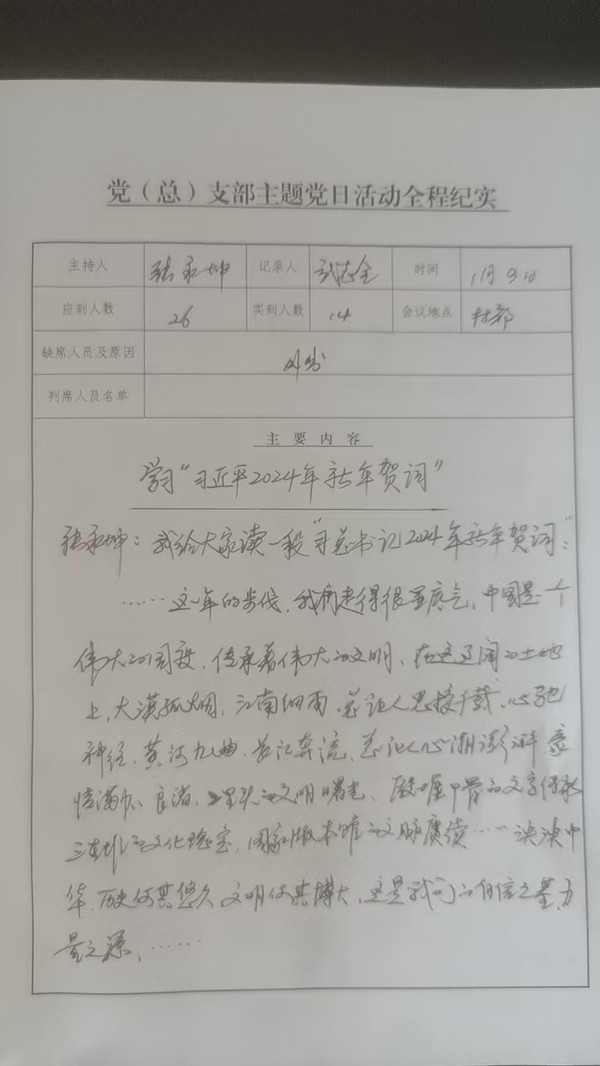 党（总）支部主题党日活动全程纪实
主持人 张永坤 记录人 武志全 时间 1月9日
应到人数 26 实到人数 14 会议地点 村部
缺席人员及原因 外出
列席人员名单
主要内容
学习“习近平2024年新年贺词”
张永坤：我给大家读一段“习总书记2024年新年贺词”：
……这一年的步伐，我们走得很有底气，中国是一个
伟大的国度，传承着伟大的文明，在这辽阔的土地
上，大漠孤烟，江南细雨，总让人思接千载、心驰
神往，黄河九曲，长江奔流，总让人心潮澎湃、豪
情满怀、良渚、二里头的文明曙光，殷墟甲骨的文字传承
三星堆的文化瑰宝，国家版本馆的文脉赓续……泱泱中
华，历史何其悠久，文明何其博大，这是我们的自信之基、力
量之源，……